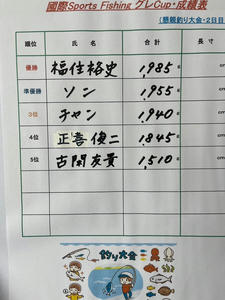 國際Sports Fishing グレCup・成績表
(懇親釣り大会・2日目
順位 氏名 合計 長寸
優勝 福住格史 1,985 g cm
準優勝 ソン 1,955 g cm
3位 チャン 1,940 g cm
4位 正喜俊二 1,845 g cm
5位 古閑友貴 1,510 g cm
釣り大会